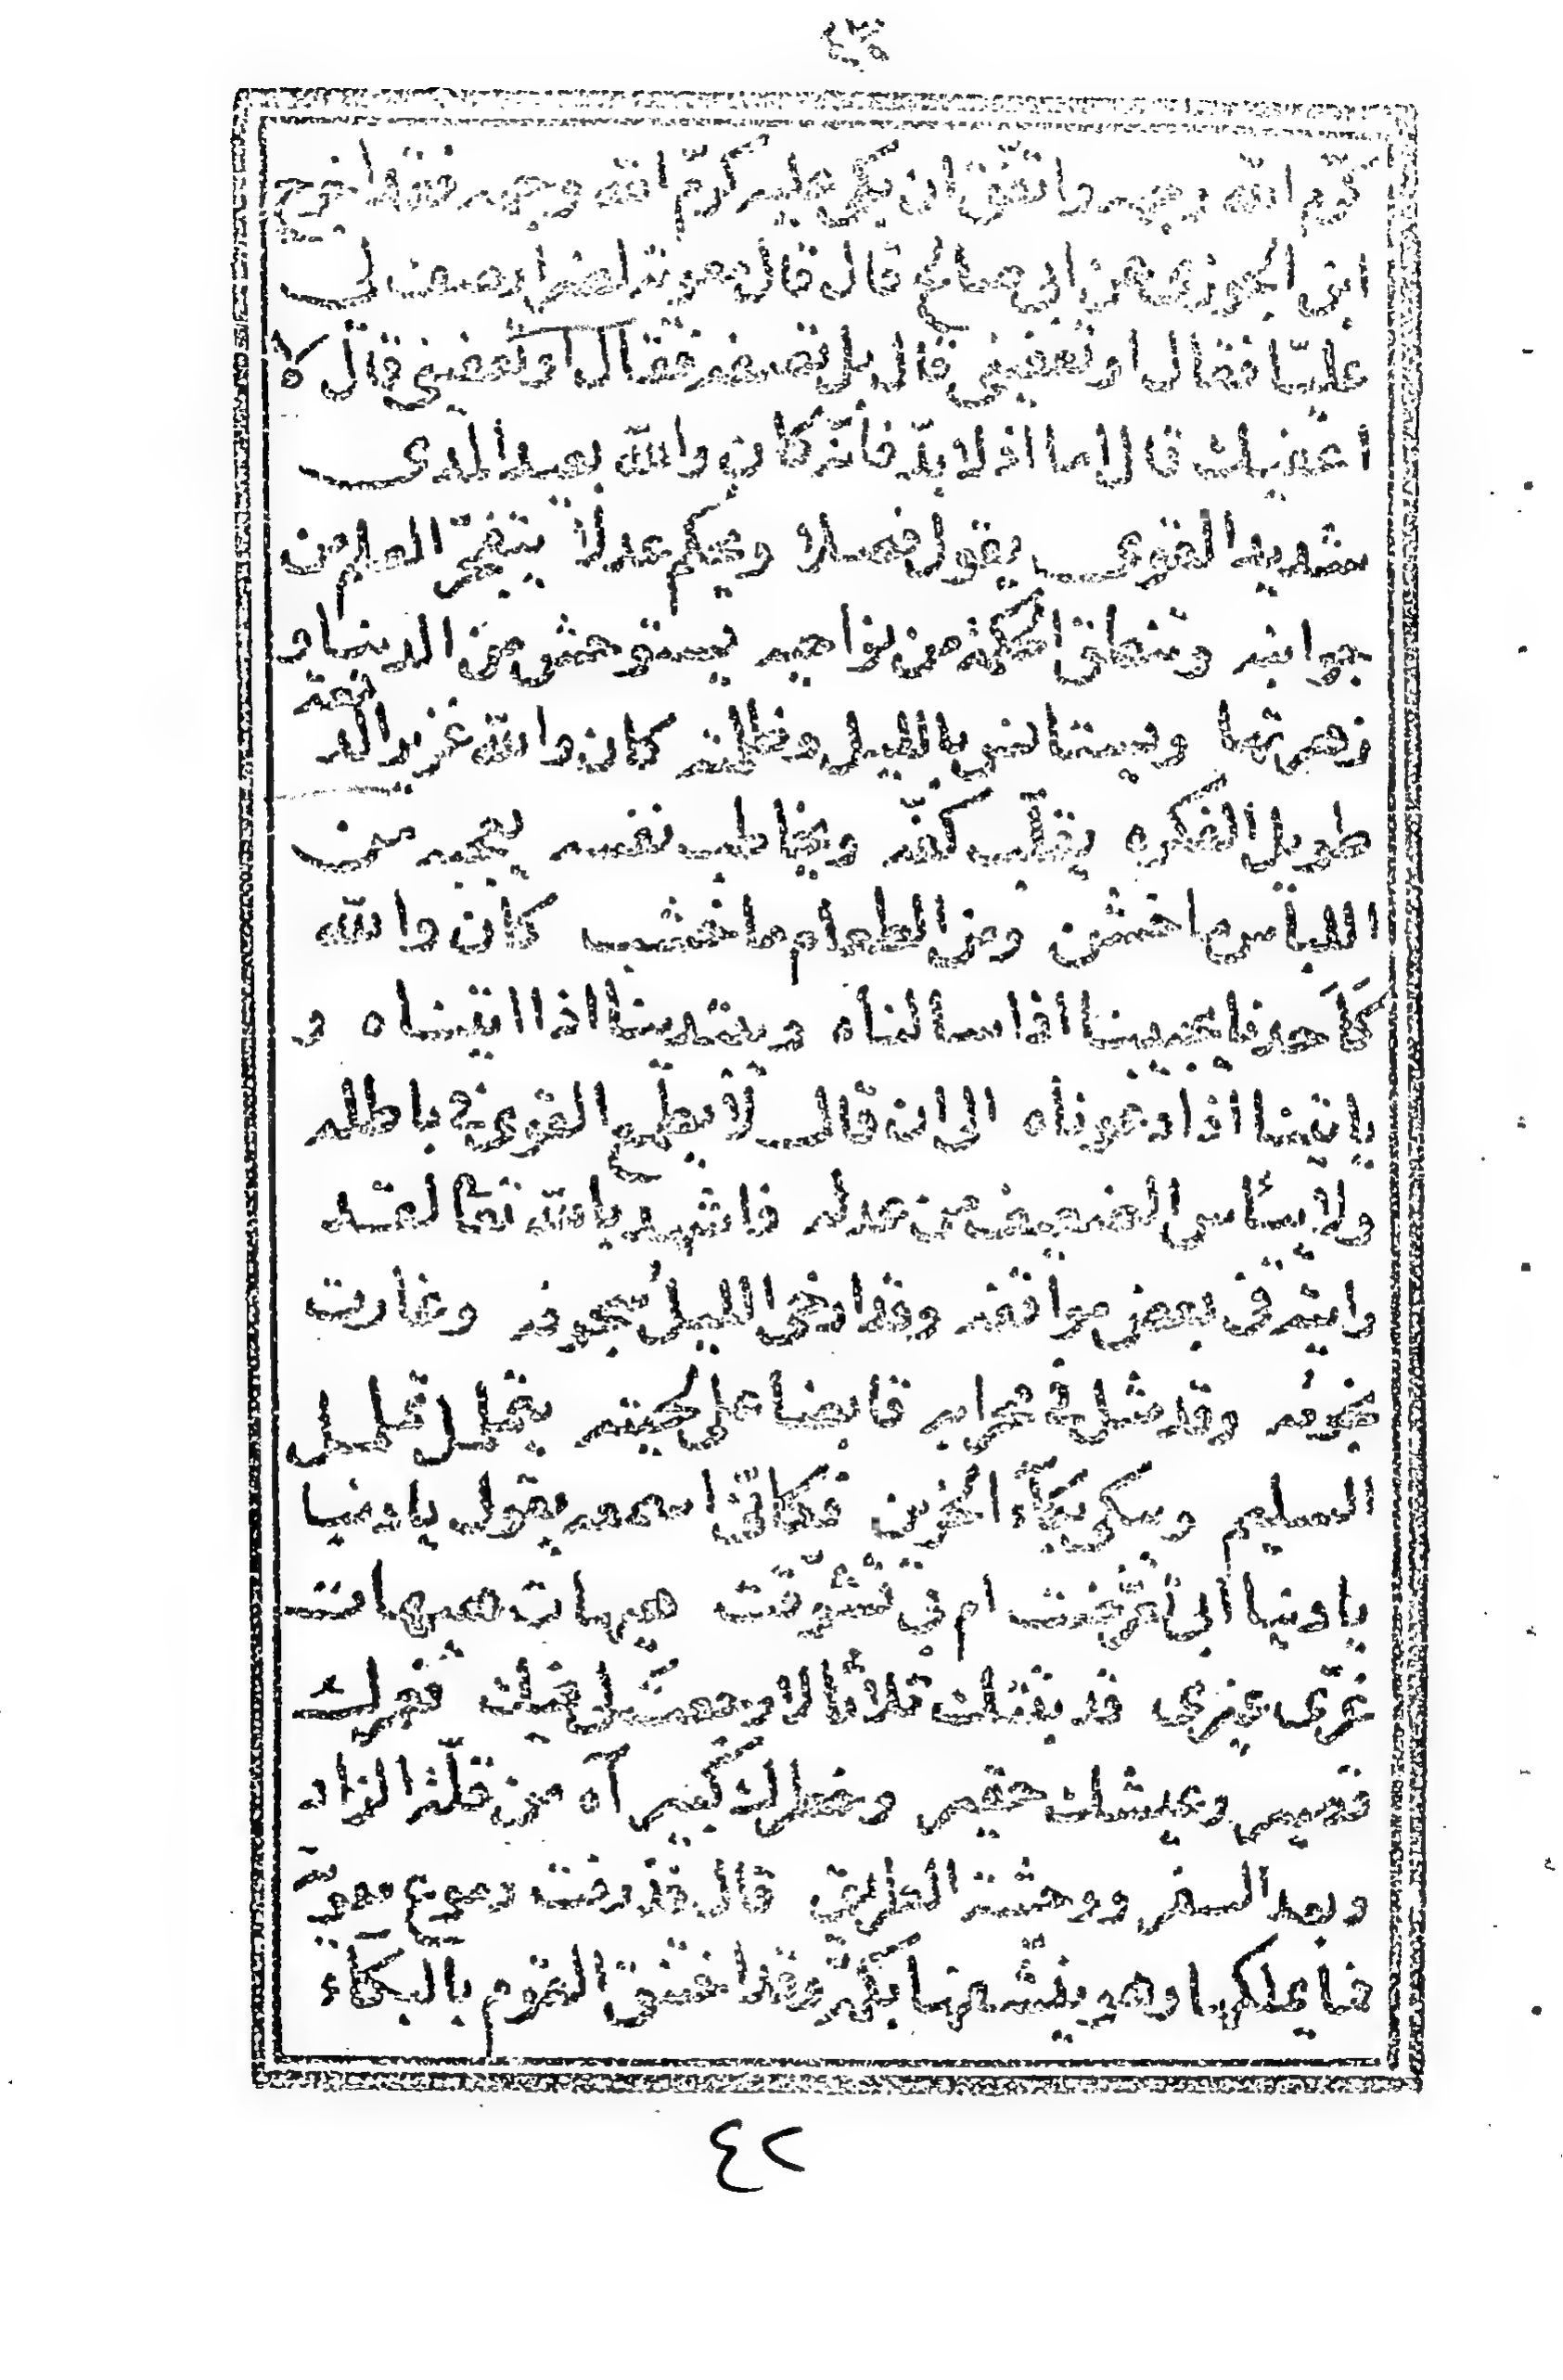 كرم الله وجهه واتفق ان يكن عليه كرم الله وجهه فقد اخرج
ابن الجوزي عن ابي صالح قال قال معوية لضرار صف لي
عليّا فقال او تعفيني قال بل تصفه فقال او تعفيني قال لا
اعفيك قال اما اذ لا بدّ فانه كان والله بعيد المدى
شديد القوى يقول فصلا ويحكم عدلا يتفجّر العلم من
جوانبه وتنطق الحكمة من نواحيه يستوحش من الدنيا و
زهرتها ويستانس بالليل وظلمته كان والله غزير الدمعة
طويل الفكره يقلّب كفّه ويخاطب نفسه يعجبه من
اللباس ما خشن ومن الطعام ما خشب كان والله
كاَحدنا يجيبنا اذا سالناه ويبتدينا اذا اتيناه و
ياتينا اذا دعوناه الى ان قال لا يطمع القوي في باطله
ولا يياس الضعيف من عدله فاشهد بالله تعالى لقد
رايته في بعض مواقفه وقد ارخى الليل سجوفه وغارت
نجومه وقد مثل في محرابه قابضا على لحيته يتململ تململ
السليم ويبكي بكآء الحزين فكانّي اسمعه يقول يا دنيا
يا دنيا ابي تعرّضت ام بي تشوّقت هيهات هيهات
غرّي غيري قد بتتك ثلاثا لا رجعة لي فيك فعمرك
قصير وعيشك حقير وخطرك كبير آه من قلّة الزاد
وبعد السفر ووحشة الطريق قال فذرفت دموع معوية
فما يملكها وهو ينشّفها بكمّه وقد اختنق القوم بالبكآء
٤٢